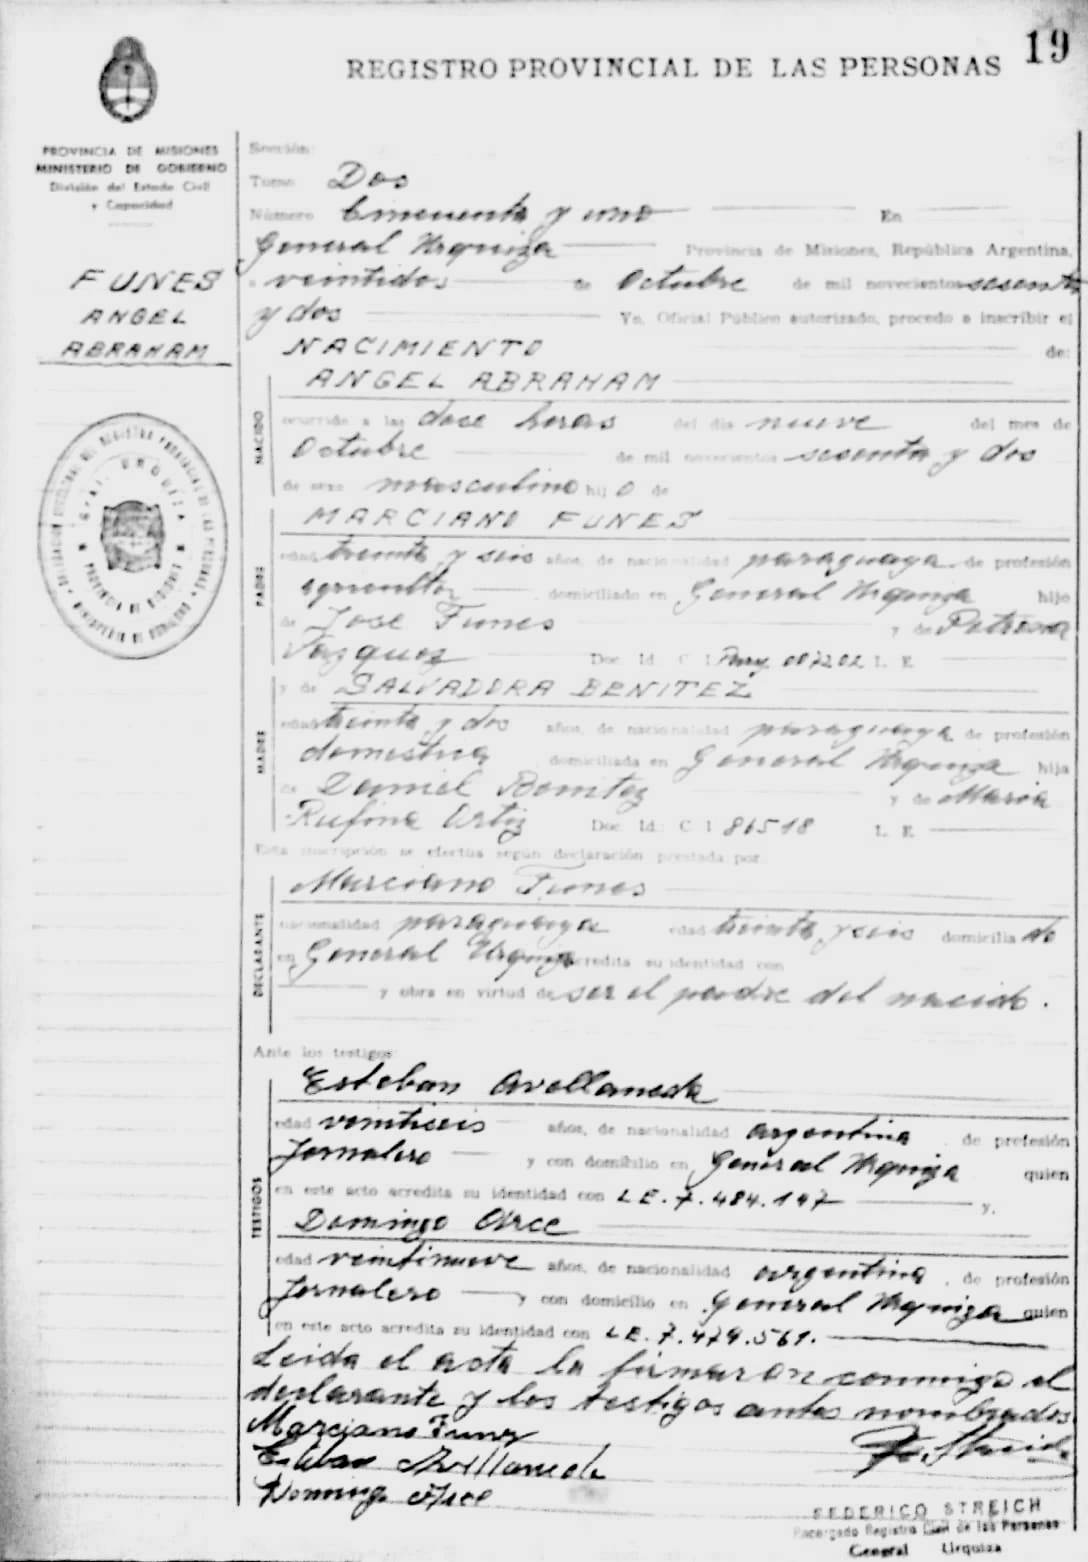 19
REGISTRO PROVINCIAL DE LAS PERSONAS
PROVINCIA DE MISIONES
MINISTERIO DE GOBIERNO
División del Estado Civil
y Capacidad
FUNES
ANGEL
ABRAHAM
Sección:
Tomo Dos
Número Cincuenta y uno En
General Urquiza Provincia de Misiones, República Argentina,
a veintidos de Octubre de mil novecientos sesenta
y dos Yo, Oficial Público autorizado, procedo a inscribir el
NACIMIENTO de:
ANGEL ABRAHAM
NACIDO
ocurrido a las doce horas del día nueve del mes de
Octubre de mil novecientos sesenta y dos
de sexo masculino hijo de
MARCIANO FUNES
PADRE
edad treinta y seis años, de nacionalidad paraguaya de profesión
agricultor domiciliado en General Urquiza hijo
de José Funes y de Petrona
Vazquez Doc. Id. C. I. Pary 007202 L. E.
y de SALVADORA BENITEZ
MADRE
edad treinta y dos años, de nacionalidad paraguaya de profesión
domestica domiciliada en General Urquiza hija
de Daniel Benitez y de Maria
Rufina Ortiz Doc. Id. C. I. 86518 L. E.
Esta inscripción se efectúa según declaración prestada por
Marciano Funes
DECLARANTE
nacionalidad paraguaya edad treinta y seis domicilia do
en General Urquiza acredita su identidad con
y obra en virtud de ser el padre del nacido.
Ante los testigos:
Esteban Avellaneda
TESTIGOS
edad veintiseis años, de nacionalidad argentina, de profesión
Jornalero y con domicilio en General Urquiza quien
en este acto acredita su identidad con L E. 7.484.147 y,
Domingo Arce
edad veintinueve años, de nacionalidad argentina, de profesión
Jornalero y con domicilio en General Urquiza quien
en este acto acredita su identidad con L E. 7.474.561.
Leida el acta la firmaron conmigo el
declarante y los testigos antes nombrados
Marciano Funez
Esteban Avellaneda
Domingo Arce
FEDERICO STREICH
Encargado Registro Civil de las Personas
General Urquiza